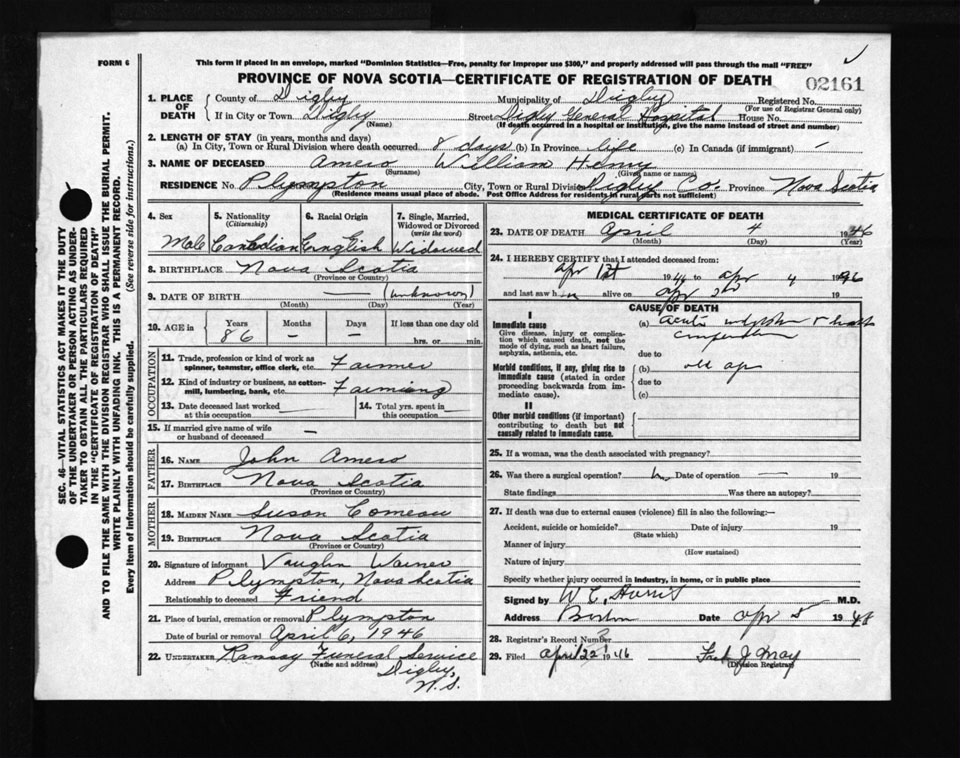 FORM 6
This form if placed in an envelope, marked "Dominion Statistics—Free, penalty for improper use $300," and properly addressed will pass through the mail "FREE"
PROVINCE OF NOVA SCOTIA—CERTIFICATE OF REGISTRATION OF DEATH
02161
1. PLACE OF DEATH
County of Digby Municipality of Digby Registered No.
(For use of Registrar General only)
If in City or Town Digby Street Digby General Hospital House No.
(Name) (If death occurred in a hospital or institution, give the name instead of street and number)
2. LENGTH OF STAY (in years, months and days)
(a) In City, Town or Rural Division where death occurred 8 days (b) In Province life (c) In Canada (if immigrant) —
3. NAME OF DECEASED Amero William Henry
(Surname) (Given name or names)
RESIDENCE No. Plympton City, Town or Rural Division Digby Co. Province Nova Scotia
(Residence means usual place of abode. Post Office Address for residents in rural parts not sufficient)
4. Sex
Male
5. Nationality
(Citizenship)
Canadian
6. Racial Origin
English
7. Single, Married, Widowed or Divorced
(write the word)
Widowed
8. BIRTHPLACE Nova Scotia
(Province or Country)
9. DATE OF BIRTH — (unknown)
(Month) (Day) (Year)
10. AGE in Years Months Days If less than one day old
86 — — hrs. or min.
OCCUPATION
11. Trade, profession or kind of work as Farmer
spinner, teamster, office clerk, etc.
12. Kind of industry or business, as cotton- Farming
mill, lumbering, bank, etc.
13. Date deceased last worked
at this occupation —
14. Total yrs. spent in
this occupation —
15. If married give name of wife
or husband of deceased —
FATHER
16. Name John Amero
17. Birthplace Nova Scotia
(Province or Country)
MOTHER
18. Maiden Name Susan Comeau
19. Birthplace Nova Scotia
(Province or Country)
20. Signature of informant Vaughn Warner
Address Plympton, Nova Scotia
Relationship to deceased Friend
21. Place of burial, cremation or removal Plympton
Date of burial or removal April 6, 1946
22. UNDERTAKER Ramsay Funeral Service
(Name and address) Digby,
N.S.
MEDICAL CERTIFICATE OF DEATH
23. DATE OF DEATH April 4 1946
(Month) (Day) (Year)
24. I HEREBY CERTIFY that I attended deceased from:
Apr 1st 1946 to apr 4 1946
and last saw him alive on apr 3rd 19
CAUSE OF DEATH
I
Immediate cause
Give disease, injury or complication which caused death, not the mode of dying, such as heart failure, asphyxia, asthenia, etc.
(a) Acute
due to
Morbid conditions, if any, giving rise to immediate cause (stated in order proceeding backwards from immediate cause).
(b) old age
due to
(c)
II
Other morbid conditions (if important) contributing to death but not causally related to immediate cause.
25. If a woman, was the death associated with pregnancy?
26. Was there a surgical operation? Date of operation — 19
State findings Was there an autopsy?
27. If death was due to external causes (violence) fill in also the following:—
Accident, suicide or homicide? Date of injury 19
(State which)
Manner of injury
(How sustained)
Nature of injury
Specify whether injury occurred in industry, in home, or in public place
Signed by M.D.
Address Date apr 5
28. Registrar's Record No.
29. Filed April 22 1946 Fred J May
(Division Registrar)
SEC. 46—VITAL STATISTICS ACT MAKES IT THE DUTY
OF THE UNDERTAKER OR PERSON ACTING AS UNDER-
TAKER TO OBTAIN ALL THE PARTICULARS REQUIRED
IN THE "CERTIFICATE OF REGISTRATION OF DEATH"
AND TO FILE THE SAME WITH THE DIVISION REGISTRAR WHO SHALL ISSUE THE BURIAL PERMIT.
WRITE PLAINLY WITH UNFADING INK. THIS IS A PERMANENT RECORD.
Every item of information should be carefully supplied. (See reverse side for instructions.)